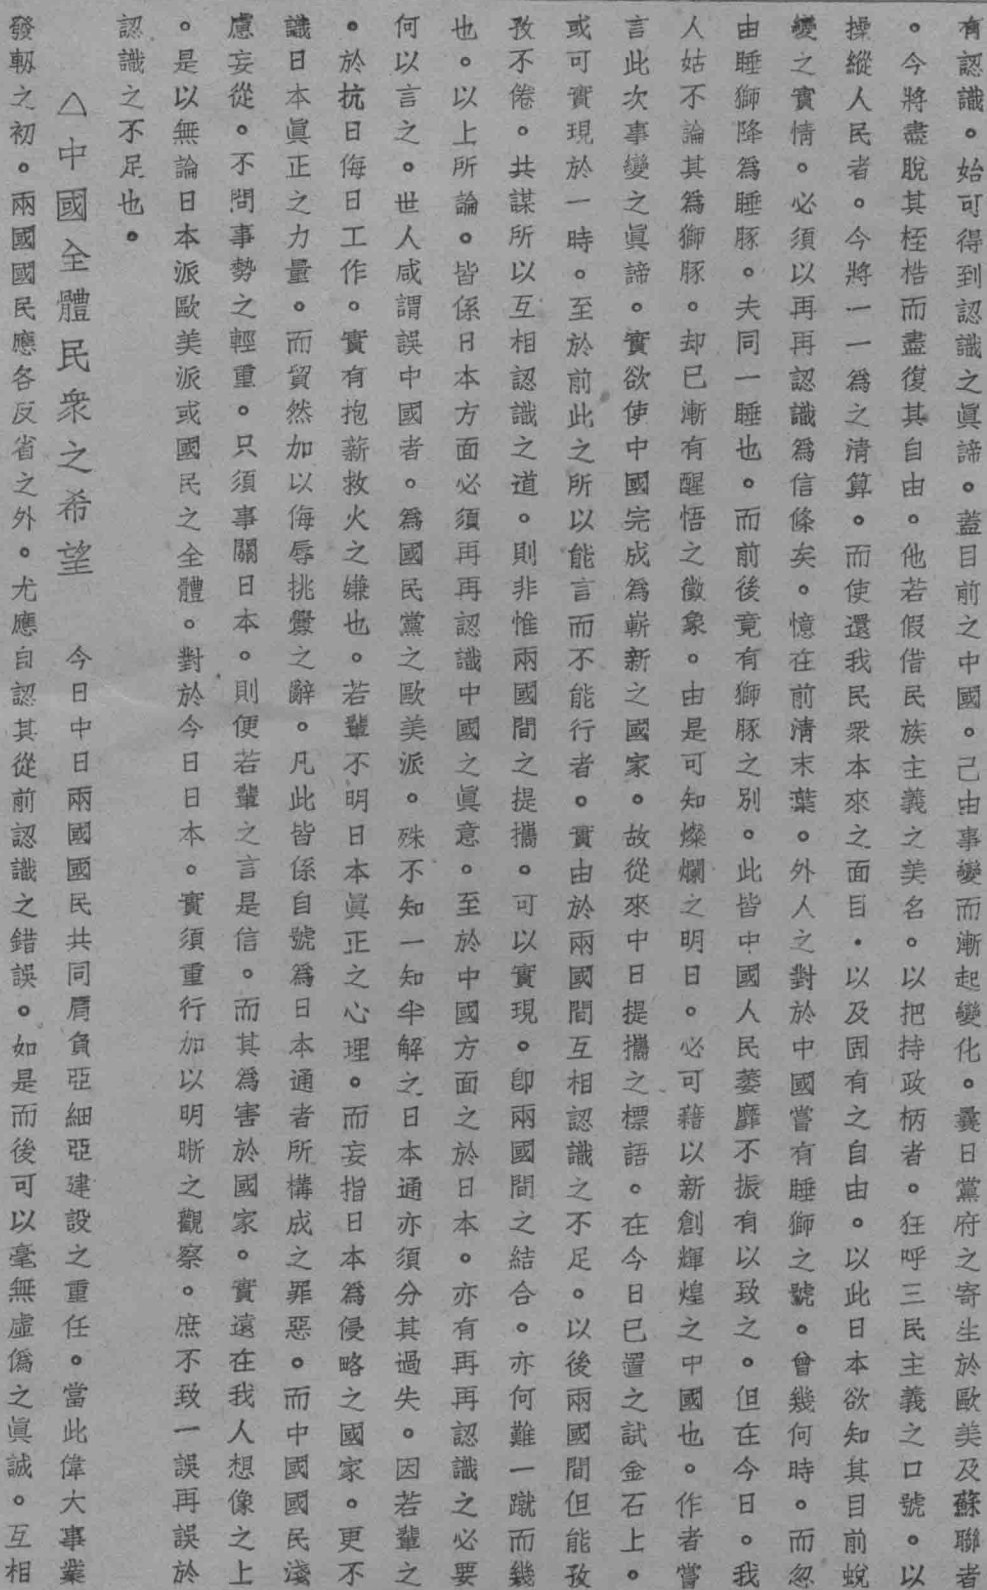 有認識。始可得到認識之眞諦。蓋目前之中國。己由事變而漸起變化。曩日黨府之寄生於歐美及蘇聯者
。今將盡脫其桎梏而盡復其自由。他若假借民族主義之美名。以把持政柄者。狂呼三民主義之口號。以
操縱人民者。今將一一爲之清算。而使還我民衆本來之面目．以及固有之自由。以此日本欲知其目前蛻
變之實情。必須以再再認識爲信條矣。憶在前清末葉。外人之對於中國嘗有睡獅之號。曾幾何時。而忽
由睡獅降爲睡豚。夫同一睡也。而前後竟有獅豚之別。此皆中國人民萎靡不振有以致之。但在今日。我
人姑不論其爲獅豚。却已漸有醒悟之徵象。由是可知燦爛之明日。必可藉以新創輝煌之中國也。作者嘗
言此次事變之眞諦。實欲使中國完成爲嶄新之國家。故從來中日提攜之標語。在今日已置之試金石上。
或可實現於一時。至於前此之所以能言而不能行者。實由於兩國間互相認識之不足。以後兩國間但能孜
孜不倦。共謀所以互相認識之道。則非惟兩國間之提攜。可以實現。卽兩國間之結合。亦何難一蹴而幾
也。以上所論。皆係日本方面必須再再認識中國之眞意。至於中國方面之於日本。亦有再再認識之必要
何以言之。世人咸謂誤中國者。爲國民黨之歐美派。殊不知一知半解之日本通亦須分其過失。因若輩之
。於抗日侮日工作。實有抱薪救火之嫌也。若輩不明日本眞正之心理。而妄指日本爲侵略之國家。更不
識日本眞正之力量。而貿然加以侮辱挑釁之辭。凡此皆係自號爲日本通者所構成之罪惡。而中國國民淺
慮妄從。不問事勢之輕重。只須事關日本。則便若輩之言是信。而其爲害於國家。實遠在我人想像之上
。是以無論日本派歐美派或國民之全體。對於今日日本。實須重行加以明晰之觀察。庶不致一誤再誤於
認識之不足也。
△中國全體民衆之希望　今日中日兩國國民共同肩負亞細亞建設之重任。當此偉大事業
發軔之初。兩國國民應各反省之外。尤應自認其從前認識之錯誤。如是而後可以毫無虛僞之眞誠。互相